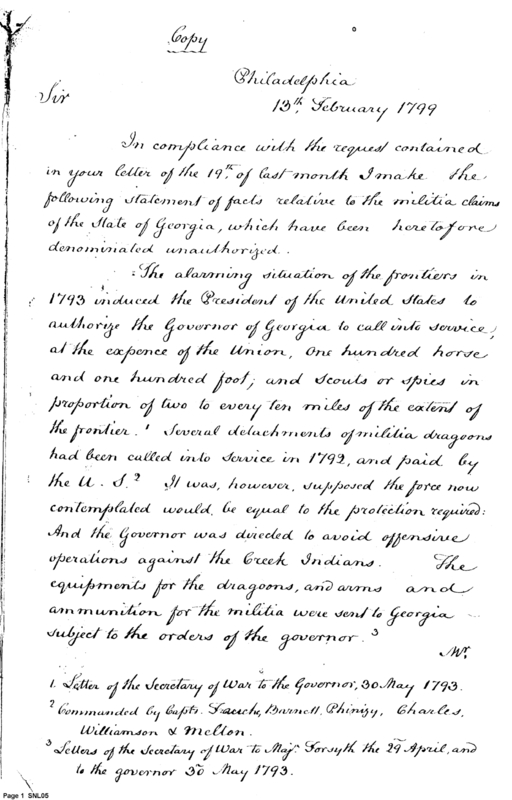 Copy
Philadelphia
Sir
13th. February 1799
In compliance with the request contained
in your letter of the 19th. of last month I make the
following statement of facts relative to the militia claims
of the State of Georgia, which have been heretofore
denominated unauthorized.
The alarming situation of the frontiers in
1793 induced the President of the United States to
authorize the Governor of Georgia to call into service,
at the expence of the Union, One hundred horse
and one hundred foot; and scouts or spies in
proportion of two to every ten miles of the extent of
the frontier. 1 Several detachments of militia dragoons
had been called into service in 1792, and paid by
the U. S. 2 It was, however, supposed the force now
contemplated would be equal to the protection required:
And the Governor was directed to avoid offensive
operations against the Creek Indians. The
equipments for the dragoons, and arms and
ammunition for the militia were sent to Georgia
subject to the orders of the governor. 3
Mr.
1. Letter of the Secretary of War to the Governor, 30 May 1793.
2 Commanded by Capts. Fauche, Barnett, Phinizy, Charles,
Williamson & Melton.
3 Letters of the Secretary of War to Maj. Forsyth the 29 April, and
to the governor 30 May 1793.
Page 1 SNL05